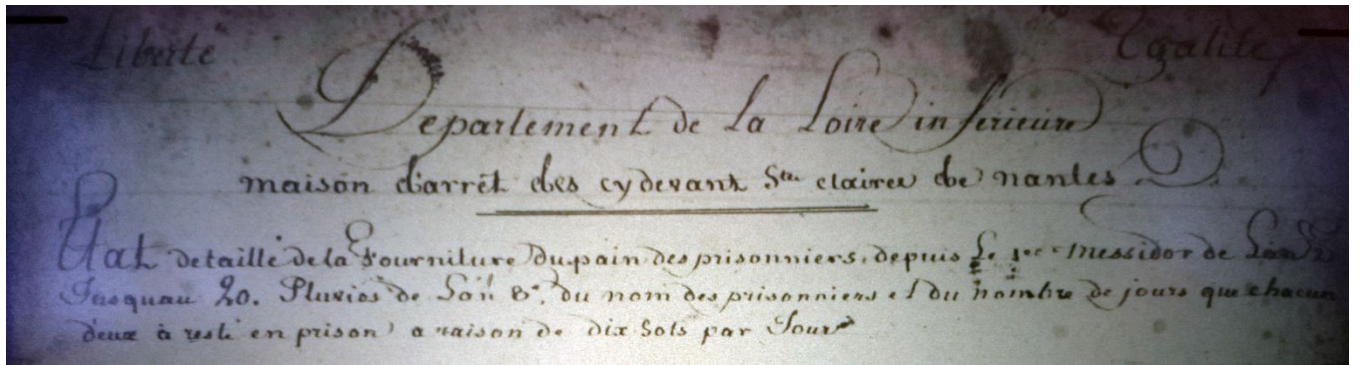 Liberté Egalité
Departement de La Loire inferieure
maison d'arrêt des cydevant Ste claires de nantes
Etat detaillé de la Fourniture Du pain des prisonniers, depuis Le 1er Messidor de L'an 2
Jusquau 20. Pluvios de L'an 3e. du nom des prisonniers et du nombre de jours que chacun
d'eux à resté en prison a raison de dix Sols par Jour